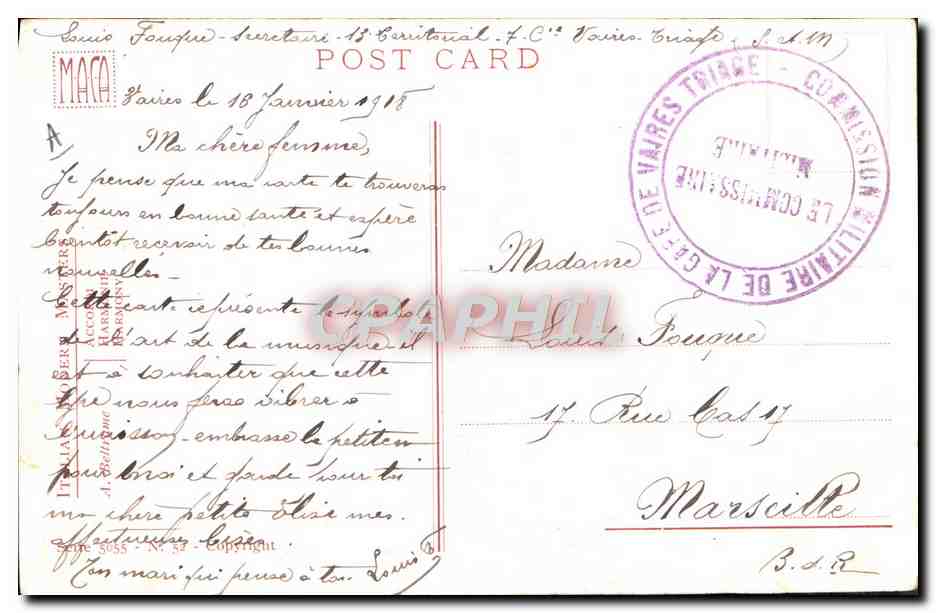 Louis Fouque - Secretaire - 13 Territorial - 7 Cie Vaires-Triage (S. et M)
POST CARD
MAGA
Vaires le 16 Janvier 1918
A
Ma chère femme,
Je pense que ma carte te trouveras
toujours en bonne santé et espère
bientôt recevoir de tes bonnes
nouvelles -
Cette carte représente le symbole
de l'art de la musique, il
est à souhaiter que cette
lyre nous fera vibrer à
l'unisson - embrasse le petiton
pour moi et garde pour toi
ma chère petite Élise mes
affectueuses bises
Ton mari qui pense à toi Louis
ITALIAN MODERN MASTERS
A. Beltrame
ACCORDI
HARMONIE
HARMONY
Serie 5055 - N. 52 - Copyright
COMMISSION MILITAIRE DE LA GARE DE VAIRES TRIAGE -
LE COMMISSAIRE
MILITAIRE
Madame
Louis Fouque
17. Rue Cas 17
Marseille
B. d. R
CPAPHIL